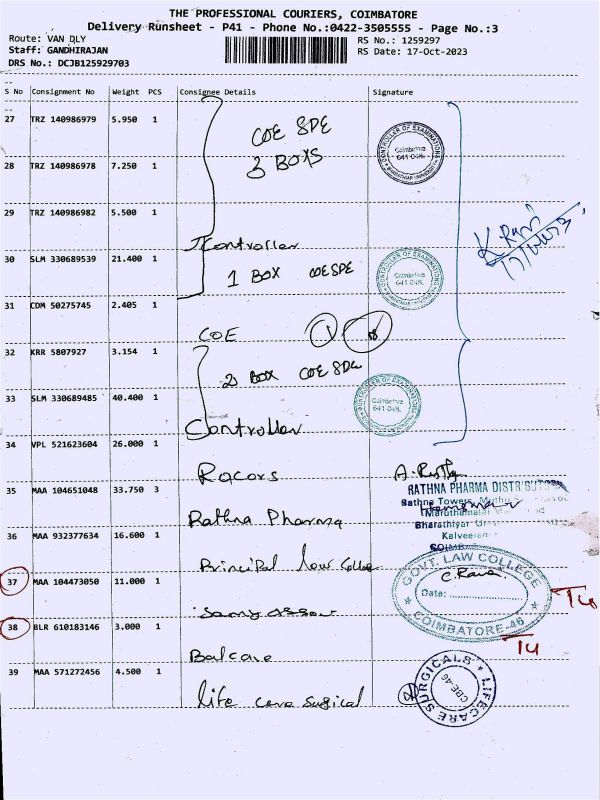 THE PROFESSIONAL COURIERS, COIMBATORE
Delivery Runsheet - P41 - Phone No.:0422-3505555 - Page No.:3
Route: VAN DLY
RS No.: 1259297
Staff: GANDHIRAJAN
RS Date: 17-Oct-2023
DRS No.: DCJB125929703
S No Consignment No Weight PCS Consignee Details Signature
27 TRZ 140986979 5.950 1
COE SPE
3 BOXS
CONTROLLER OF EXAMINATIONS
Coimbatore
641 046.
BHARATHIAR UNIVERSITY
28 TRZ 140986978 7.250 1
29 TRZ 140986982 5.500 1
Controller
30 SLM 330689539 21.400 1
1 BOX COE SPE
CONTROLLER OF EXAMINATIONS
Coimbatore
641 046.
31 CDM 50275745 2.405 1
COE 1
32 KRR 5807927 3.154 1
2 BOX COE SPE
CONTROLLER OF EXAMINATIONS
Coimbatore
641 046.
33 SLM 330689485 40.400 1
Controller
34 VPL 521623604 26.000 1
Rocors
35 MAA 104651048 33.750 3
Rathna Pharma
RATHNA PHARMA DISTRIBUTORS
Rathna Towers,
Bharathiyar
Kalveeran
COIMB
36 MAA 932377634 16.600 1
Principal law College
GOVT. LAW COLLEGE
C. Rana
Date:
COIMBATORE-46
37 MAA 104473050 11.000 1
38 BLR 610183146 3.000 1
Balcare
39 MAA 571272456 4.500 1
life care sugical
LIFECARE SURGICALS
CBE-46